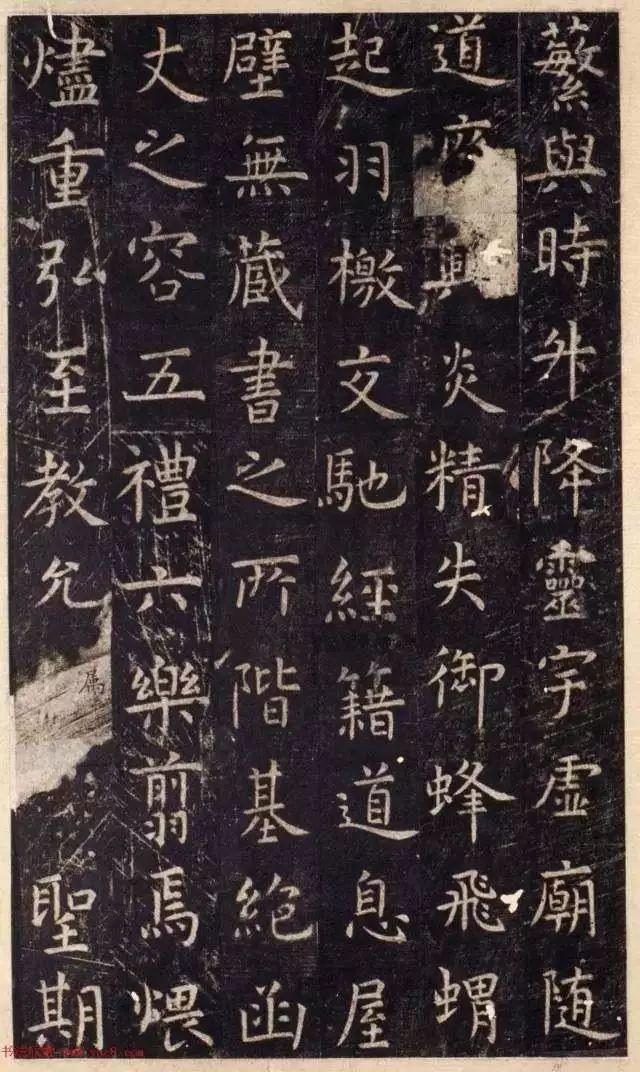 蘩與時升降靈宇虛廟隨
道廢興炎精失御蜂飛蝟
起羽檄交馳經籍道息屋
壁無藏書之所階基絕函
丈之容五禮六樂翦焉煨
燼重弘至教允屬聖期